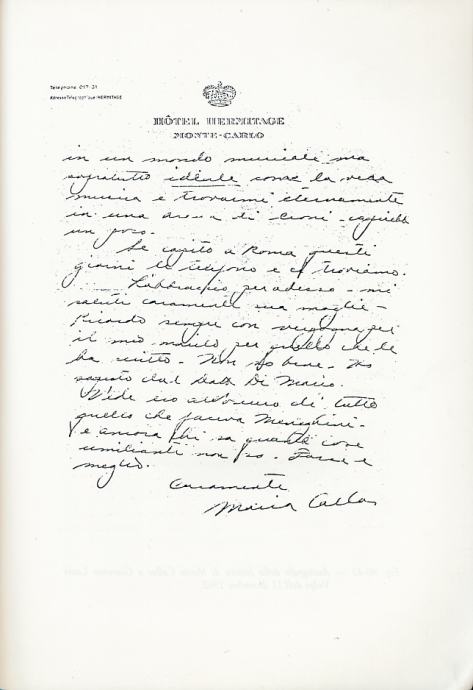 Téléphone 017-31
Adresse Télégraphique: HERMITAGE
HÔTEL HERMITAGE
MONTE-CARLO
in un mondo musicale ma
sopratutto idéale come la vera
musica e trovarmi eternamente
in una arena di leoni -
un poco.
Se capito a Roma questi
giorni le telefono e ci troviamo.
L'abbraccio per adesso - mi
saluti caramente sua moglie -
Ricordo sempre con vergogna per
il mio marito per quello che le
ha scritto. Non so bene. Ho
saputo dal Dott. Di Marco.
Vede ero all'oscuro di tutto
quello che faceva Meneghini -
e ancora chi sa quante cose
umilianti non so. Forse e
meglio.
Caramente
Maria Callas